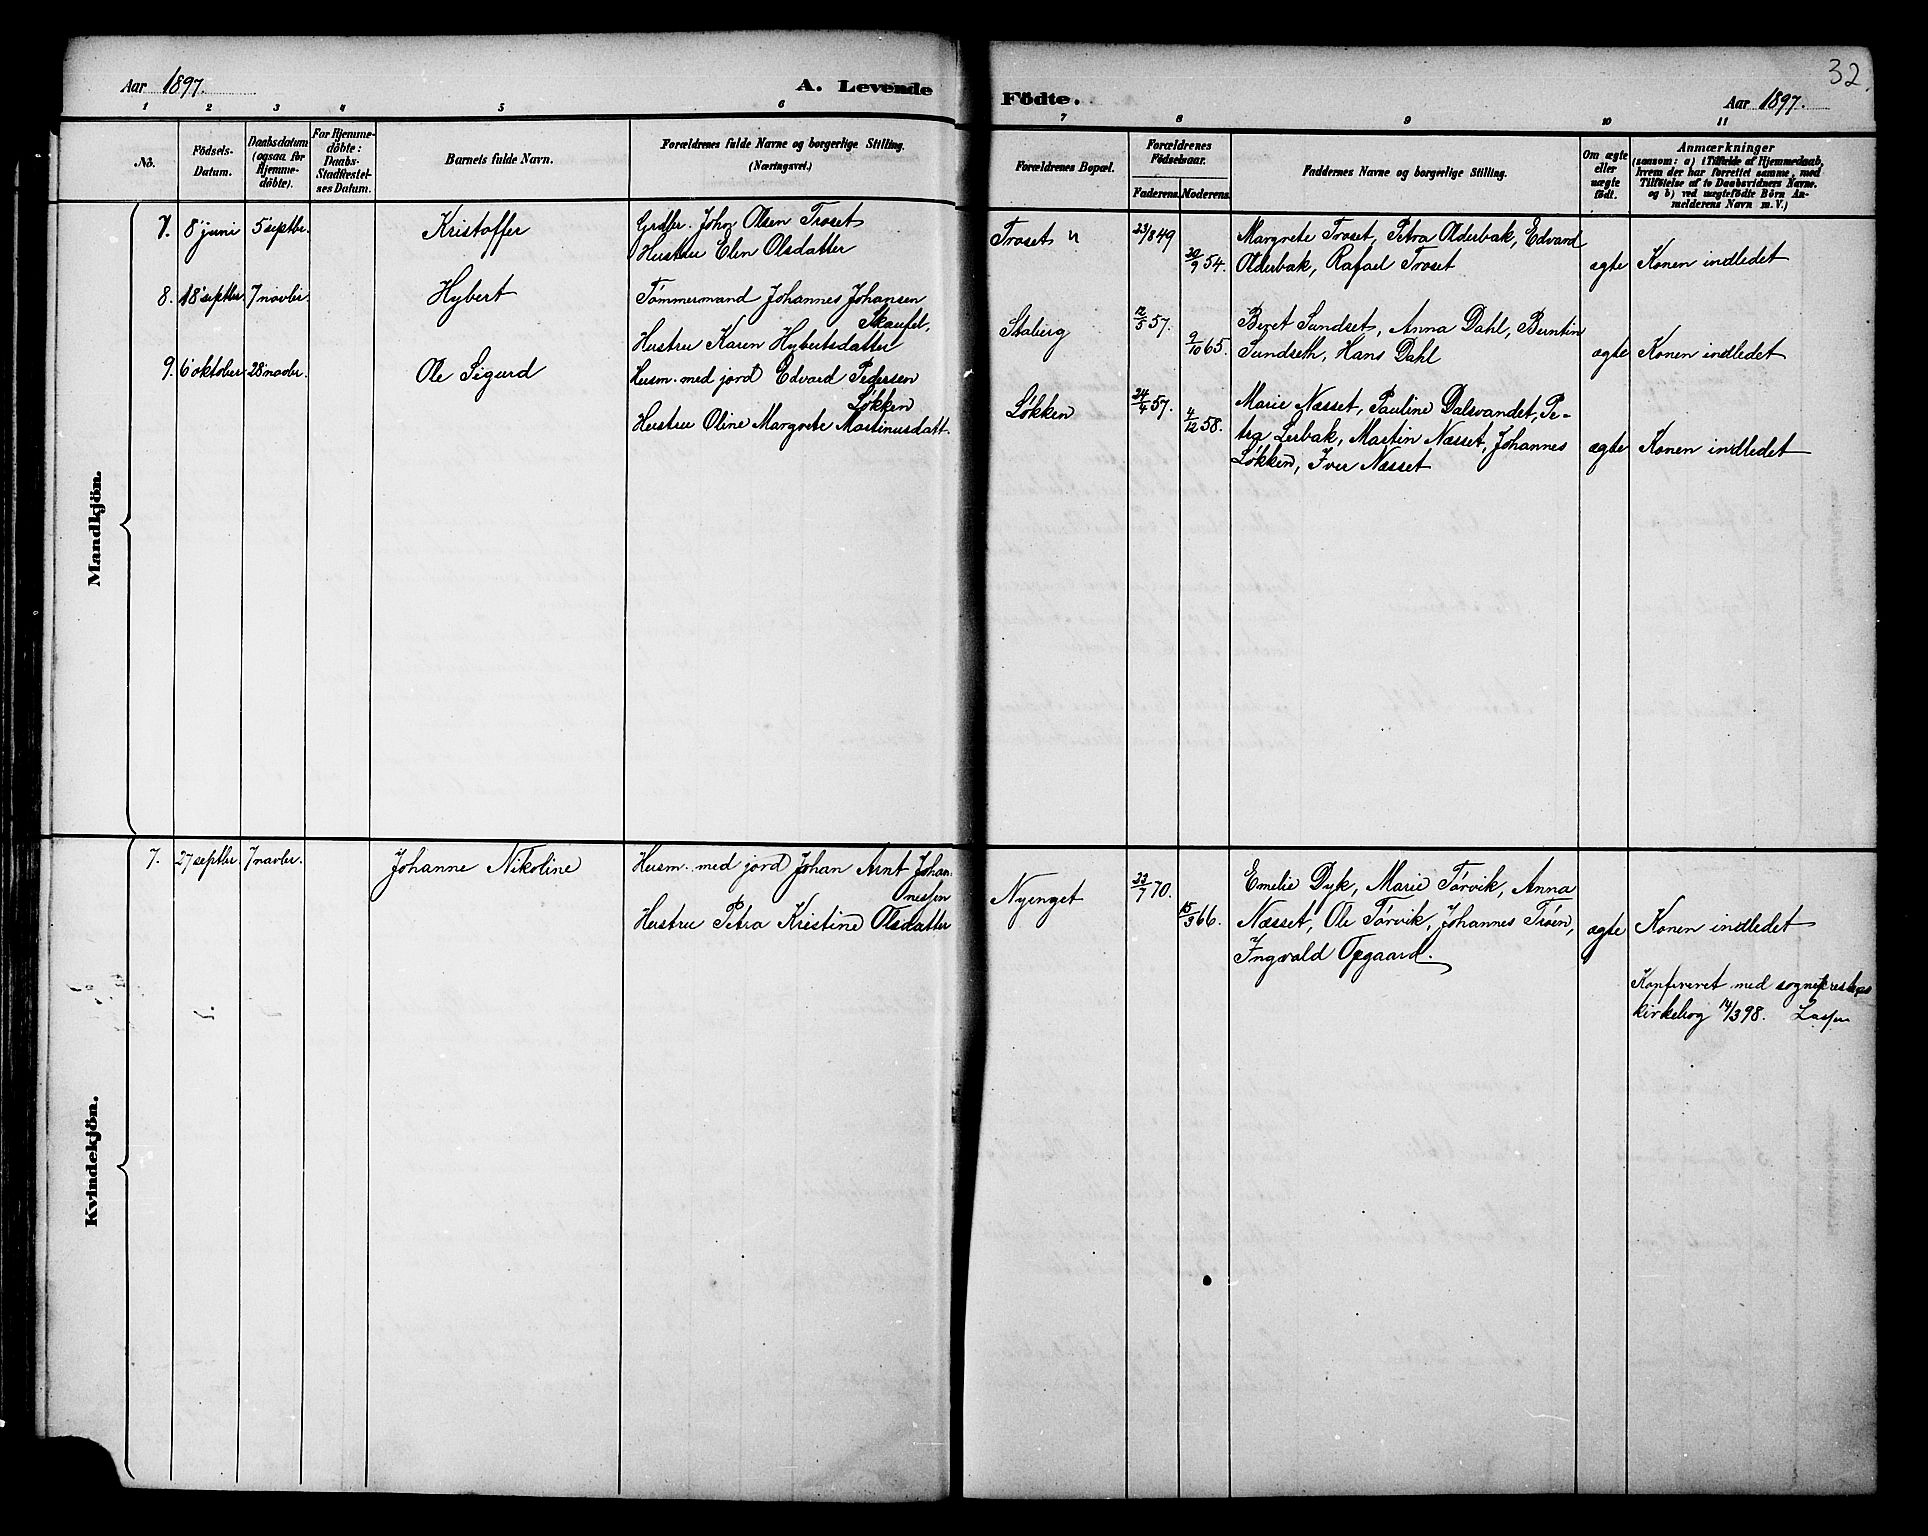 32.
Aar 1897. A. Levende Födte. Aar 1897.
1 2 3 4 5 6 7 8 9 10 11
No.
Födsels-
Datum.
Daabsdatum
(ogsaa for
Hjemme-
döbte).
For Hjemme-
döbte:
Daabs-
Stadfæstel-
ses Datum.
Barnets fulde Navn.
Forældrenes fulde Navne og borgerlige Stilling.
(Næringsvei.)
Forældrenes Bopæl.
Forældrenes
Födselsaar.
Faderens. Moderens.
Faddernes Navne og borgerlige Stilling.
Om ægte
eller
uægte
födt.
Anmærkninger
(saasom: a) i Tilfælde af Hjemmedaab,
hvem der har forrettet samme, med
Tilföielse af to Daabsvidners Navne,
og b) ved uægtefödte Börn An-
melderens Navn m. V.)
Mandkjön.
7. 8' juni 5' septbr. Kristoffer
Grdbr. Johan Olsen Troset
Hustru Elen Olsdatter
Troset
23/8 49
20/9 54.
Margrete Troset, Petra Olderbak, Edvard
Olderbak, Rafael Troset
ægte Konen indledet
8. 18' septbr. 7' novbr. Hybert
Tømmermand Johannes Johansen
Skaufel,
Hustru Karen Hybertsdatter
Staberg
12/5 57.
9/10 65.
Beret Sundset, Anna Dahl, Berntin
Sundseth, Hans Dahl
ægte Konen indledet
9. 6' oktober 28' novbr. Ole Sigurd
Husm. med jord Edvard Pedersen
Løkken
Hustru Oline Margrete Martinusdatt.
Løkken
24/4 57.
4/12 58.
Marie Næsset, Pauline Dalsvandet, Pe-
tra Lerbak, Martin Næsset, Johannes
Løkken, Iver Næsset
ægte Konen indledet
Kvindekjön.
7. 27 septbr. 7 novbr. Johanne Nikoline
Husm. med jord Johan Arnt Johan-
nessen
Hustru Petra Kristine Olsdatter
Nyenget
23/7 70.
15/3 66.
Emelie Dyk, Marie Tørvik, Anna
Næsset, Ole Tørvik, Johannes Trøen,
Ingvald Opgaard.
ægte Konen indledet
Konfereret med sogneprestens
kirkebog 14/3 98.